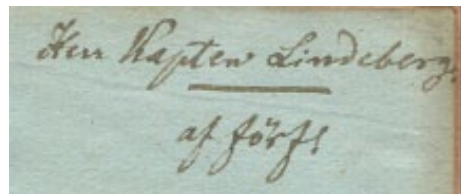 Herr Kapten Lindeberg.
af förfs